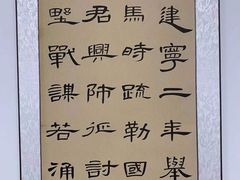 建寧二年舉
馬時疏勒國
君興師征討
野戰謀若涌